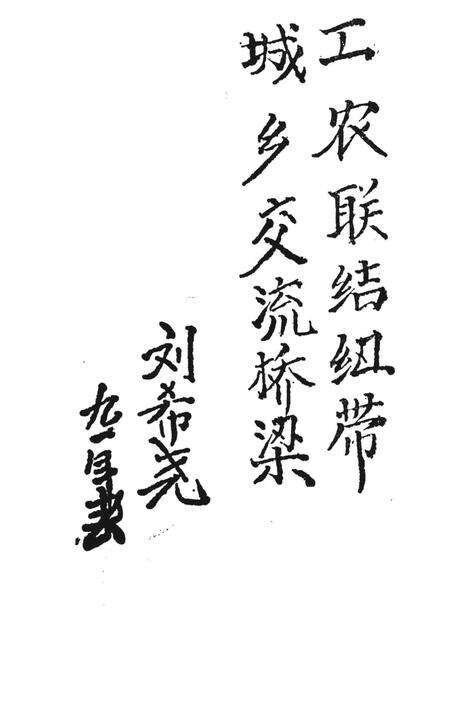 工农联结纽带
城乡交流桥梁
刘希尧
九一年春